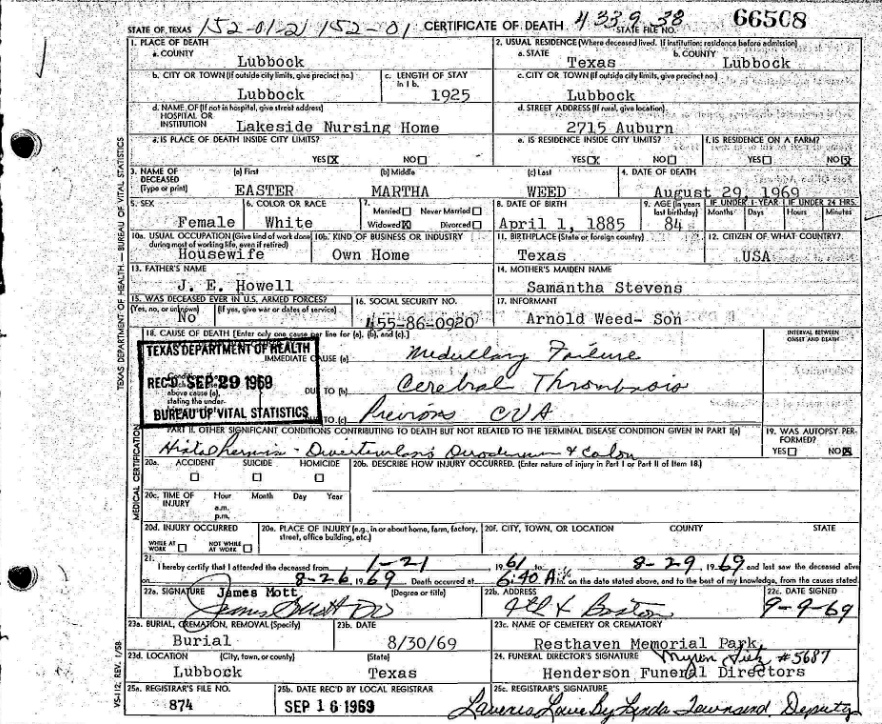 STATE OF TEXAS 152-01-21 152-01 CERTIFICATE OF DEATH 4 33.9 38 STATE FILE NO. 66508
1. PLACE OF DEATH
a. COUNTY
Lubbock
2. USUAL RESIDENCE (Where deceased lived. If institution: residence before admission)
a. STATE
Texas
b. COUNTY
Lubbock
b. CITY OR TOWN (If outside city limits, give precinct no.)
Lubbock
c. LENGTH OF STAY
in 1 b.
1925
c. CITY OR TOWN (If outside city limits, give precinct no.)
Lubbock
d. NAME OF (If not in hospital, give street address)
HOSPITAL OR
INSTITUTION
Lakeside Nursing Home
d. STREET ADDRESS (If rural, give location)
2715 Auburn
e. IS PLACE OF DEATH INSIDE CITY LIMITS?
YES X NO
e. IS RESIDENCE INSIDE CITY LIMITS?
YES X NO
f. IS RESIDENCE ON A FARM?
YES NO X
3. NAME OF
DECEASED
(Type or print)
(a) First
EASTER
(b) Middle
MARTHA
(c) Last
WEED
4. DATE OF DEATH
August 29, 1969
5. SEX
Female
6. COLOR OR RACE
White
7.
Married Never Married
Widowed X Divorced
8. DATE OF BIRTH
April 1, 1885
9. AGE (In years
last birthday)
84
IF UNDER 1 YEAR
Months Days
IF UNDER 24 HRS.
Hours Minutes
10a. USUAL OCCUPATION (Give kind of work done
during most of working life, even if retired)
Housewife
10b. KIND OF BUSINESS OR INDUSTRY
Own Home
11. BIRTHPLACE (State or foreign country)
Texas
12. CITIZEN OF WHAT COUNTRY?
USA
13. FATHER'S NAME
J. E. Howell
14. MOTHER'S MAIDEN NAME
Samantha Stevens
15. WAS DECEASED EVER IN U.S. ARMED FORCES?
(Yes, no, or unknown) (If yes, give war or dates of service)
No
16. SOCIAL SECURITY NO.
455-86-0920
17. INFORMANT
Arnold Weed- Son
18. CAUSE OF DEATH [Enter only one cause per line for (a), (b), and (c).]
INTERVAL BETWEEN
ONSET AND DEATH
IMMEDIATE CAUSE (a) Medullary Failure
above cause (a),
stating the under-
DUE TO (b) Cerebral Thrombosis
DUE TO (c) Previous CVA
TEXAS DEPARTMENT OF HEALTH
REC'D SEP 29 1969
BUREAU OF VITAL STATISTICS
PART II. OTHER SIGNIFICANT CONDITIONS CONTRIBUTING TO DEATH BUT NOT RELATED TO THE TERMINAL DISEASE CONDITION GIVEN IN PART I(a)
Hiatal hernia - Duodenum & Colon
19. WAS AUTOPSY PER-
FORMED?
YES NO X
20a. ACCIDENT SUICIDE HOMICIDE
20b. DESCRIBE HOW INJURY OCCURRED. (Enter nature of injury in Part I or Part II of Item 18.)
20c. TIME OF
INJURY
Hour Month Day Year
a.m.
p.m.
20d. INJURY OCCURRED
WHILE AT
WORK
NOT WHILE
AT WORK
20e. PLACE OF INJURY (e.g., in or about home, farm, factory,
street, office building, etc.)
20f. CITY, TOWN, OR LOCATION COUNTY STATE
21.
I hereby certify that I attended the deceased from 1-21 1961 to 8-29, 1969 and last saw the deceased alive
on 8-26 1969 Death occurred at 6:40 A m. on the date stated above, and to the best of my knowledge, from the causes stated.
22a. SIGNATURE James Mott (Degree or title)
James Mott DO
22b. ADDRESS
22c. DATE SIGNED
9-9-69
23a. BURIAL, CREMATION, REMOVAL (Specify)
Burial
23b. DATE
8/30/69
23c. NAME OF CEMETERY OR CREMATORY
Resthaven Memorial Park
23d. LOCATION (City, town, or county) (State)
Lubbock Texas
24. FUNERAL DIRECTOR'S SIGNATURE #5687
Henderson Funeral Directors
25a. REGISTRAR'S FILE NO.
874
25b. DATE REC'D BY LOCAL REGISTRAR
SEP 16 1969
25c. REGISTRAR'S SIGNATURE
Laveris Lowe By Linda Townsend Deputy
TEXAS DEPARTMENT OF HEALTH — BUREAU OF VITAL STATISTICS
MEDICAL CERTIFICATION
VS-112, REV. 1/58